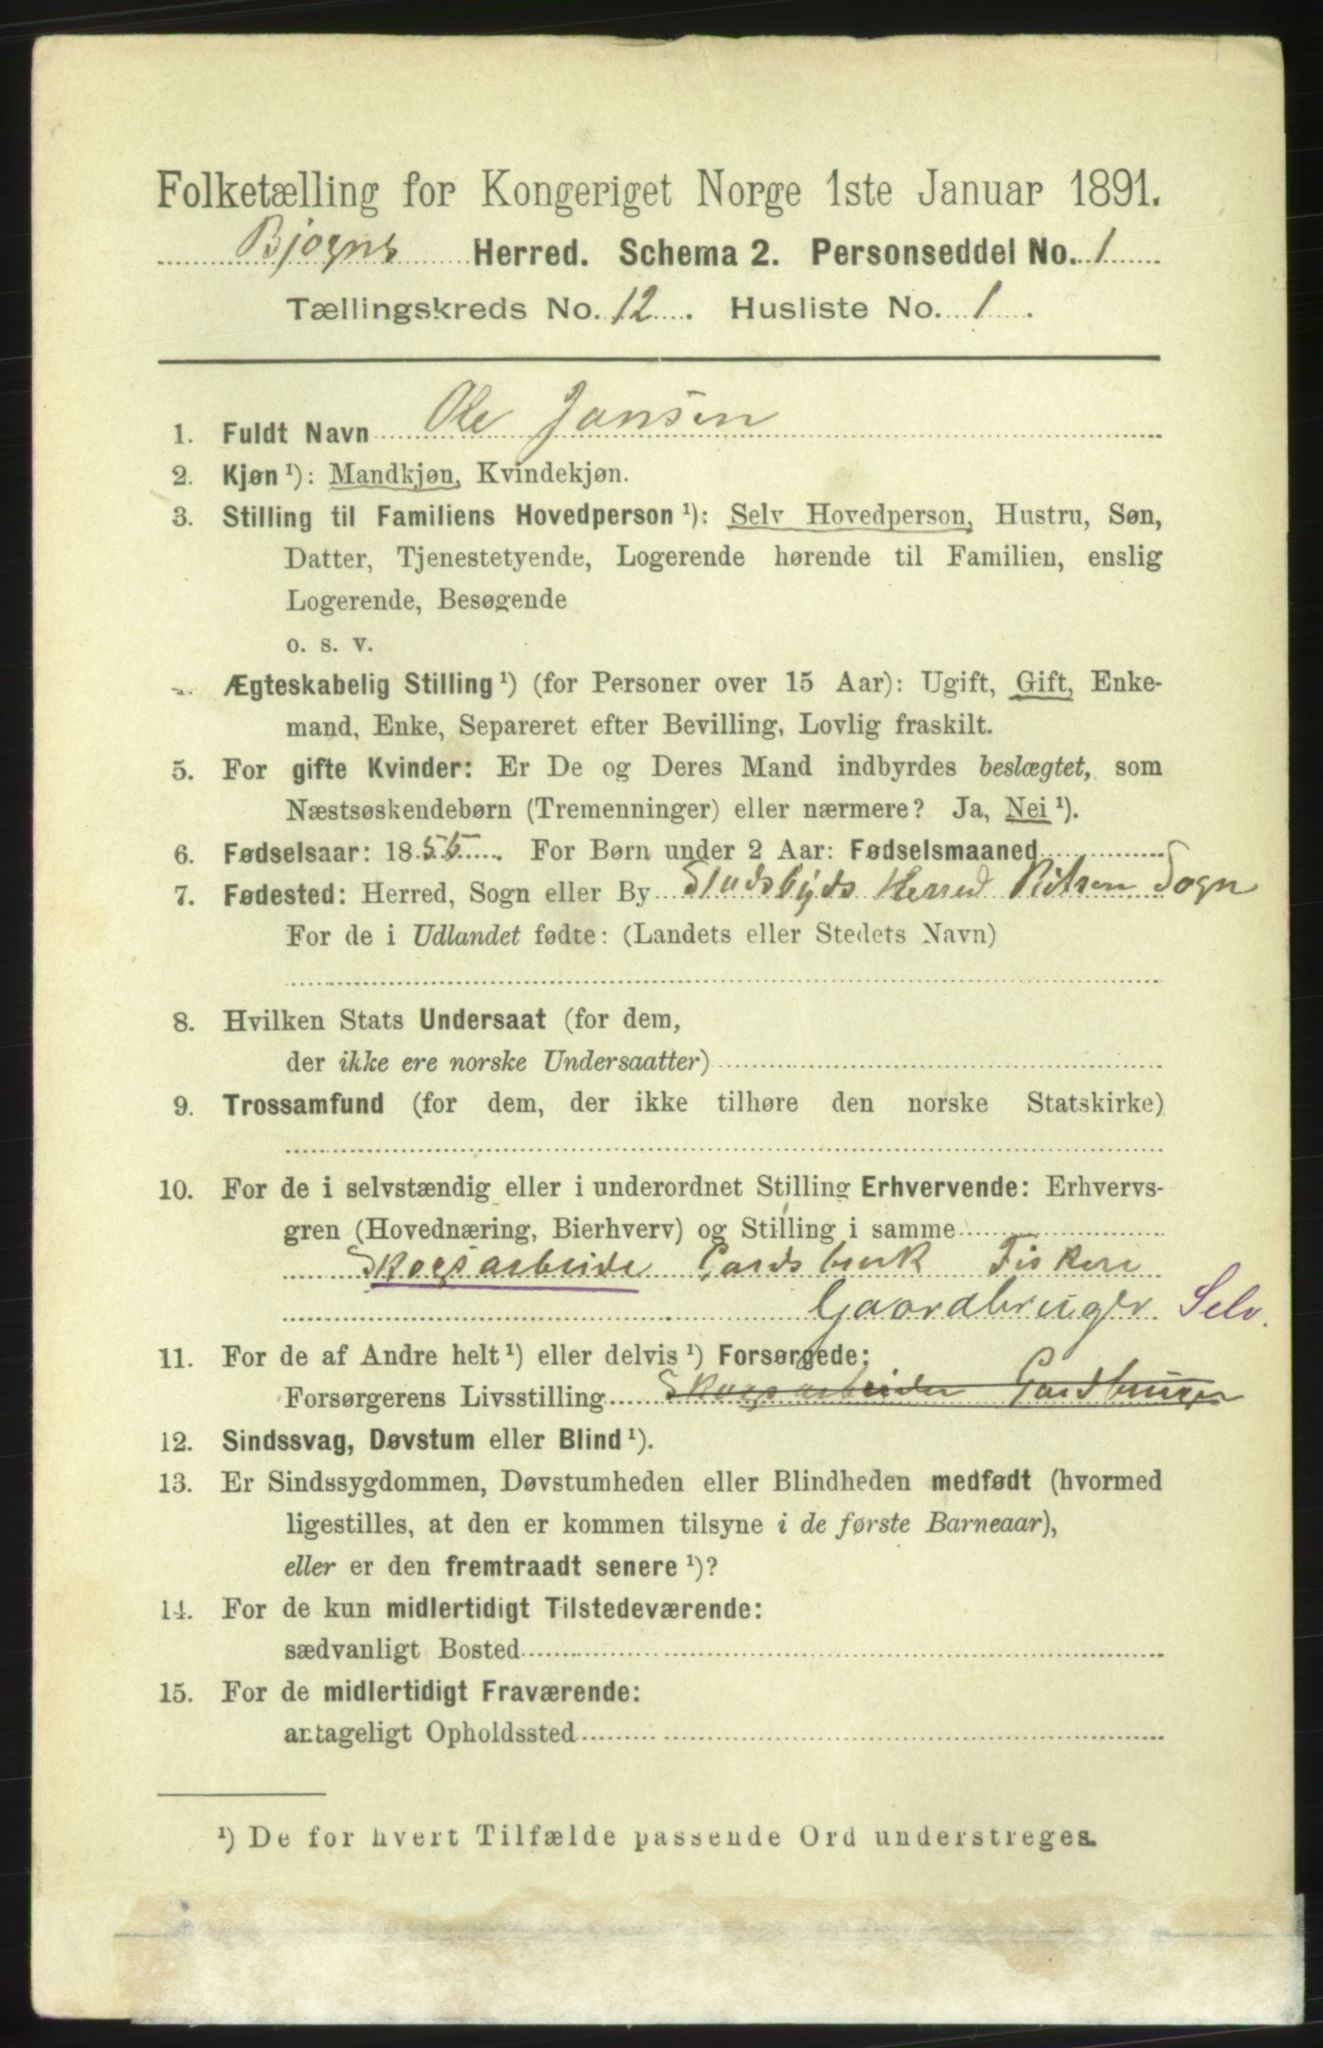 Folketælling for Kongeriget Norge 1ste Januar 1891.
Bjogns Herred. Schema 2. Personseddel No. 1
Tællingskreds No. 12. Husliste No. 1.
1. Fuldt Navn Ole Jansen
2. Kjøn ¹): Mandkjøn, Kvindekjøn.
3. Stilling til Familiens Hovedperson ¹): Selv Hovedperson, Hustru, Søn,
Datter, Tjenestetyende, Logerende hørende til Familien, enslig
Logerende, Besøgende
o. s. v.
Ægteskabelig Stilling ¹) (for Personer over 15 Aar): Ugift, Gift, Enke-
mand, Enke, Separeret efter Bevilling, Lovlig fraskilt.
5. For gifte Kvinder: Er De og Deres Mand indbyrdes beslægtet, som
Næstsøskendebørn (Tremenninger) eller nærmere? Ja, Nei ¹).
6. Fødselsaar: 1855. For Børn under 2 Aar: Fødselsmaaned
7. Fødested: Herred, Sogn eller By Stadsbyds Herred Sogn
For de i Udlandet fødte: (Landets eller Stedets Navn)
8. Hvilken Stats Undersaat (for dem,
der ikke ere norske Undersaatter)
9. Trossamfund (for dem, der ikke tilhøre den norske Statskirke)
10. For de i selvstændig eller i underordnet Stilling Erhvervende: Erhvervs-
gren (Hovednæring, Bierhverv) og Stilling i samme
Skogsarbeide Gardsbruk Fiskere
Gaardbruger Selv.
11. For de af Andre helt ¹) eller delvis ¹) Forsørgede:
Forsørgerens Livsstilling Skogsarbeider Gardbruger
12. Sindssvag, Døvstum eller Blind ¹).
13. Er Sindssygdommen, Døvstumheden eller Blindheden medfødt (hvormed
ligestilles, at den er kommen tilsyne i de første Barneaar),
eller er den fremtraadt senere ¹)?
14. For de kun midlertidigt Tilstedeværende:
sædvanligt Bosted
15. For de midlertidigt Fraværende:
antageligt Opholdssted
¹) De for hvert Tilfælde passende Ord understreges.